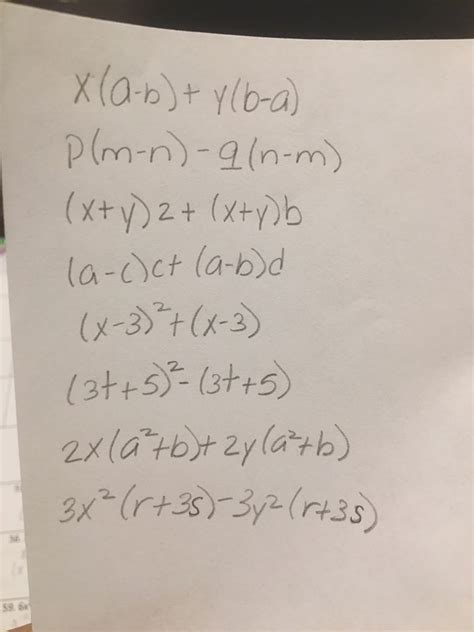 x(a-b)+ y(b-a)
p(m-n)-q(n-m)
(x+y)2+(x+y)b
(a-c)c+ (a-b)d
(x-3)²+(x-3)
(3t+5)²-(3t+5)
2x(a²+b)+2y(a²+b)
3x²(r+3s)-3y²(r+3s)
59. 6x